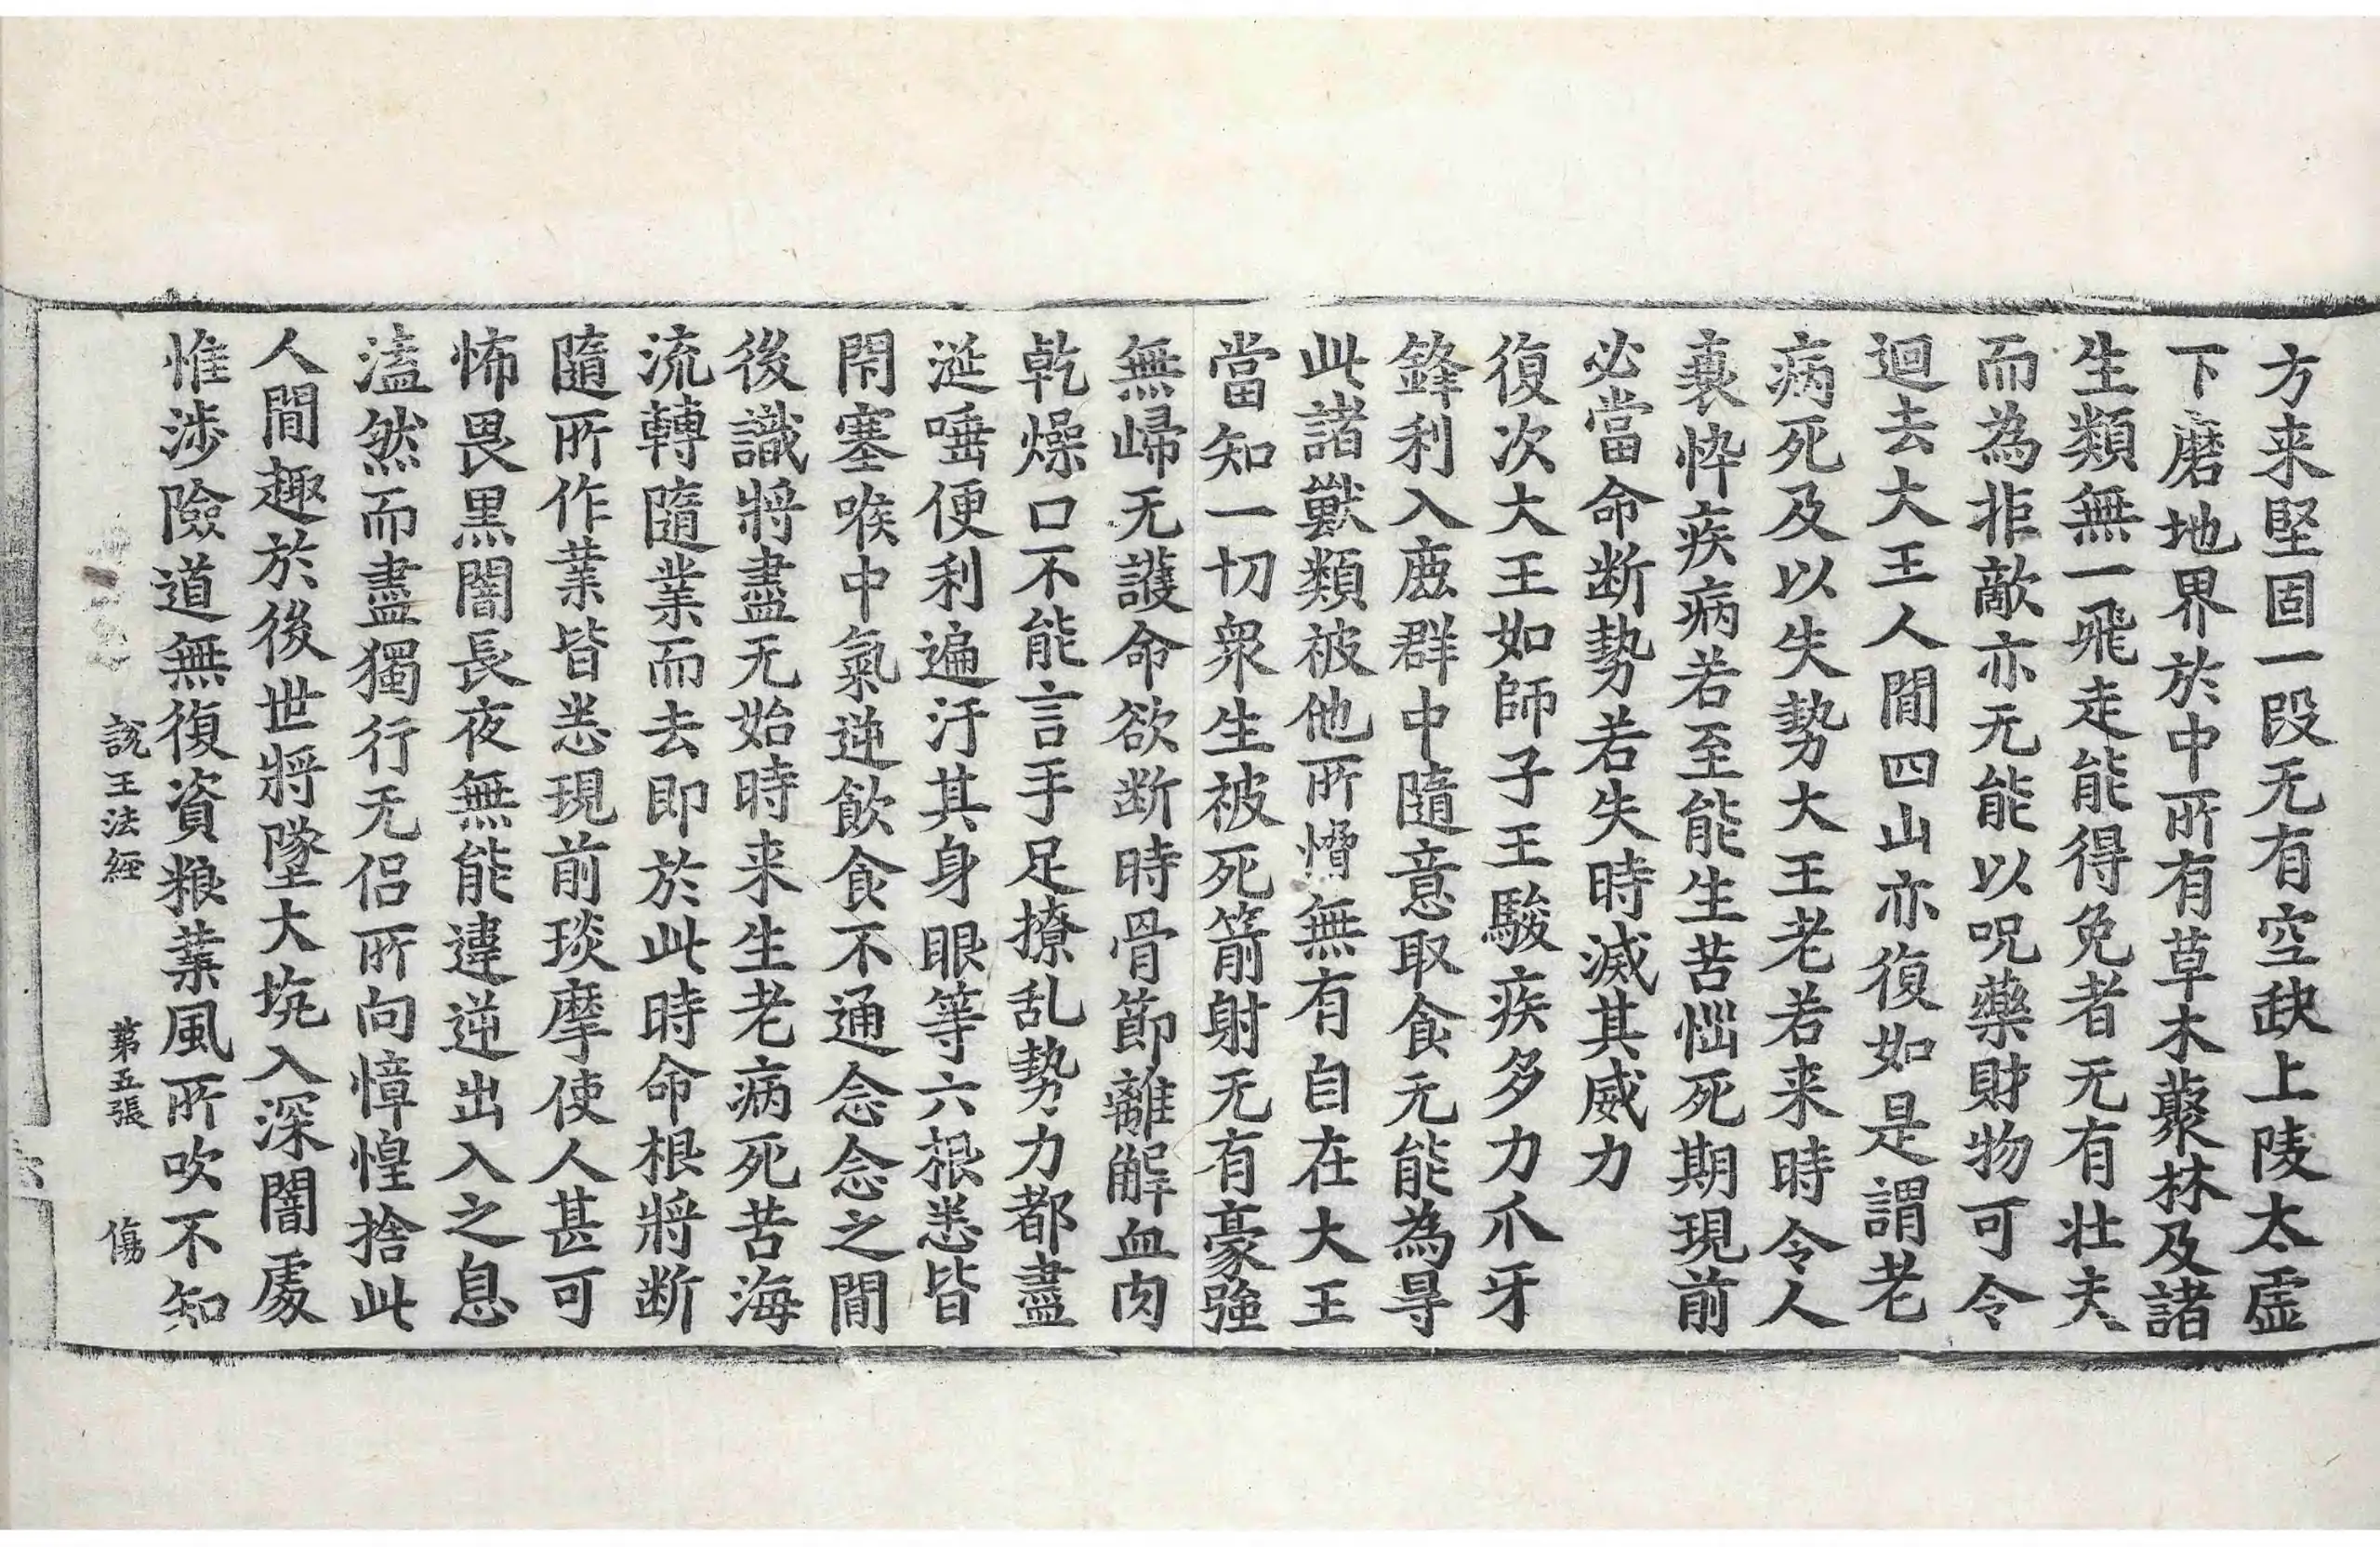 方来堅固一段无有空缺上陵太虛
下磨地界於中所有草木藂林及諸
生類無一飛走能得免者无有壮夫
而為拒敵亦无能以呪藥財物可令
迴去大王人間四山亦復如是謂老
病死及以失勢大王老若来時令人
衰悴疾病若至能生苦惱死期現前
必當命断勢若失時滅其威力
復次大王如師子王駿疾多力爪牙
鋒利入鹿群中隨意取食无能為㝵
此諸獸類被他所㦬無有自在大王
當知一切衆生被死箭射无有豪強
無歸无護命欲断時骨節離解血肉
乾燥口不能言手足撩乱勢力都盡
涎唾便利遍汙其身眼等六根悉皆
閇塞喉中氣逆飲食不通念念之間
後識將盡无始時来生老病死苦海
流轉隨業而去即於此時命根將断
隨所作業皆悉現前琰摩使人甚可
怖畏黒闇長夜無能違逆出入之息
溘然而盡獨行无侶所向慞惶捨此
人間趣於後世將墜大坑入深闇處
惟涉險道無復資粮業風所吹不知
說王法経 第五張 傷